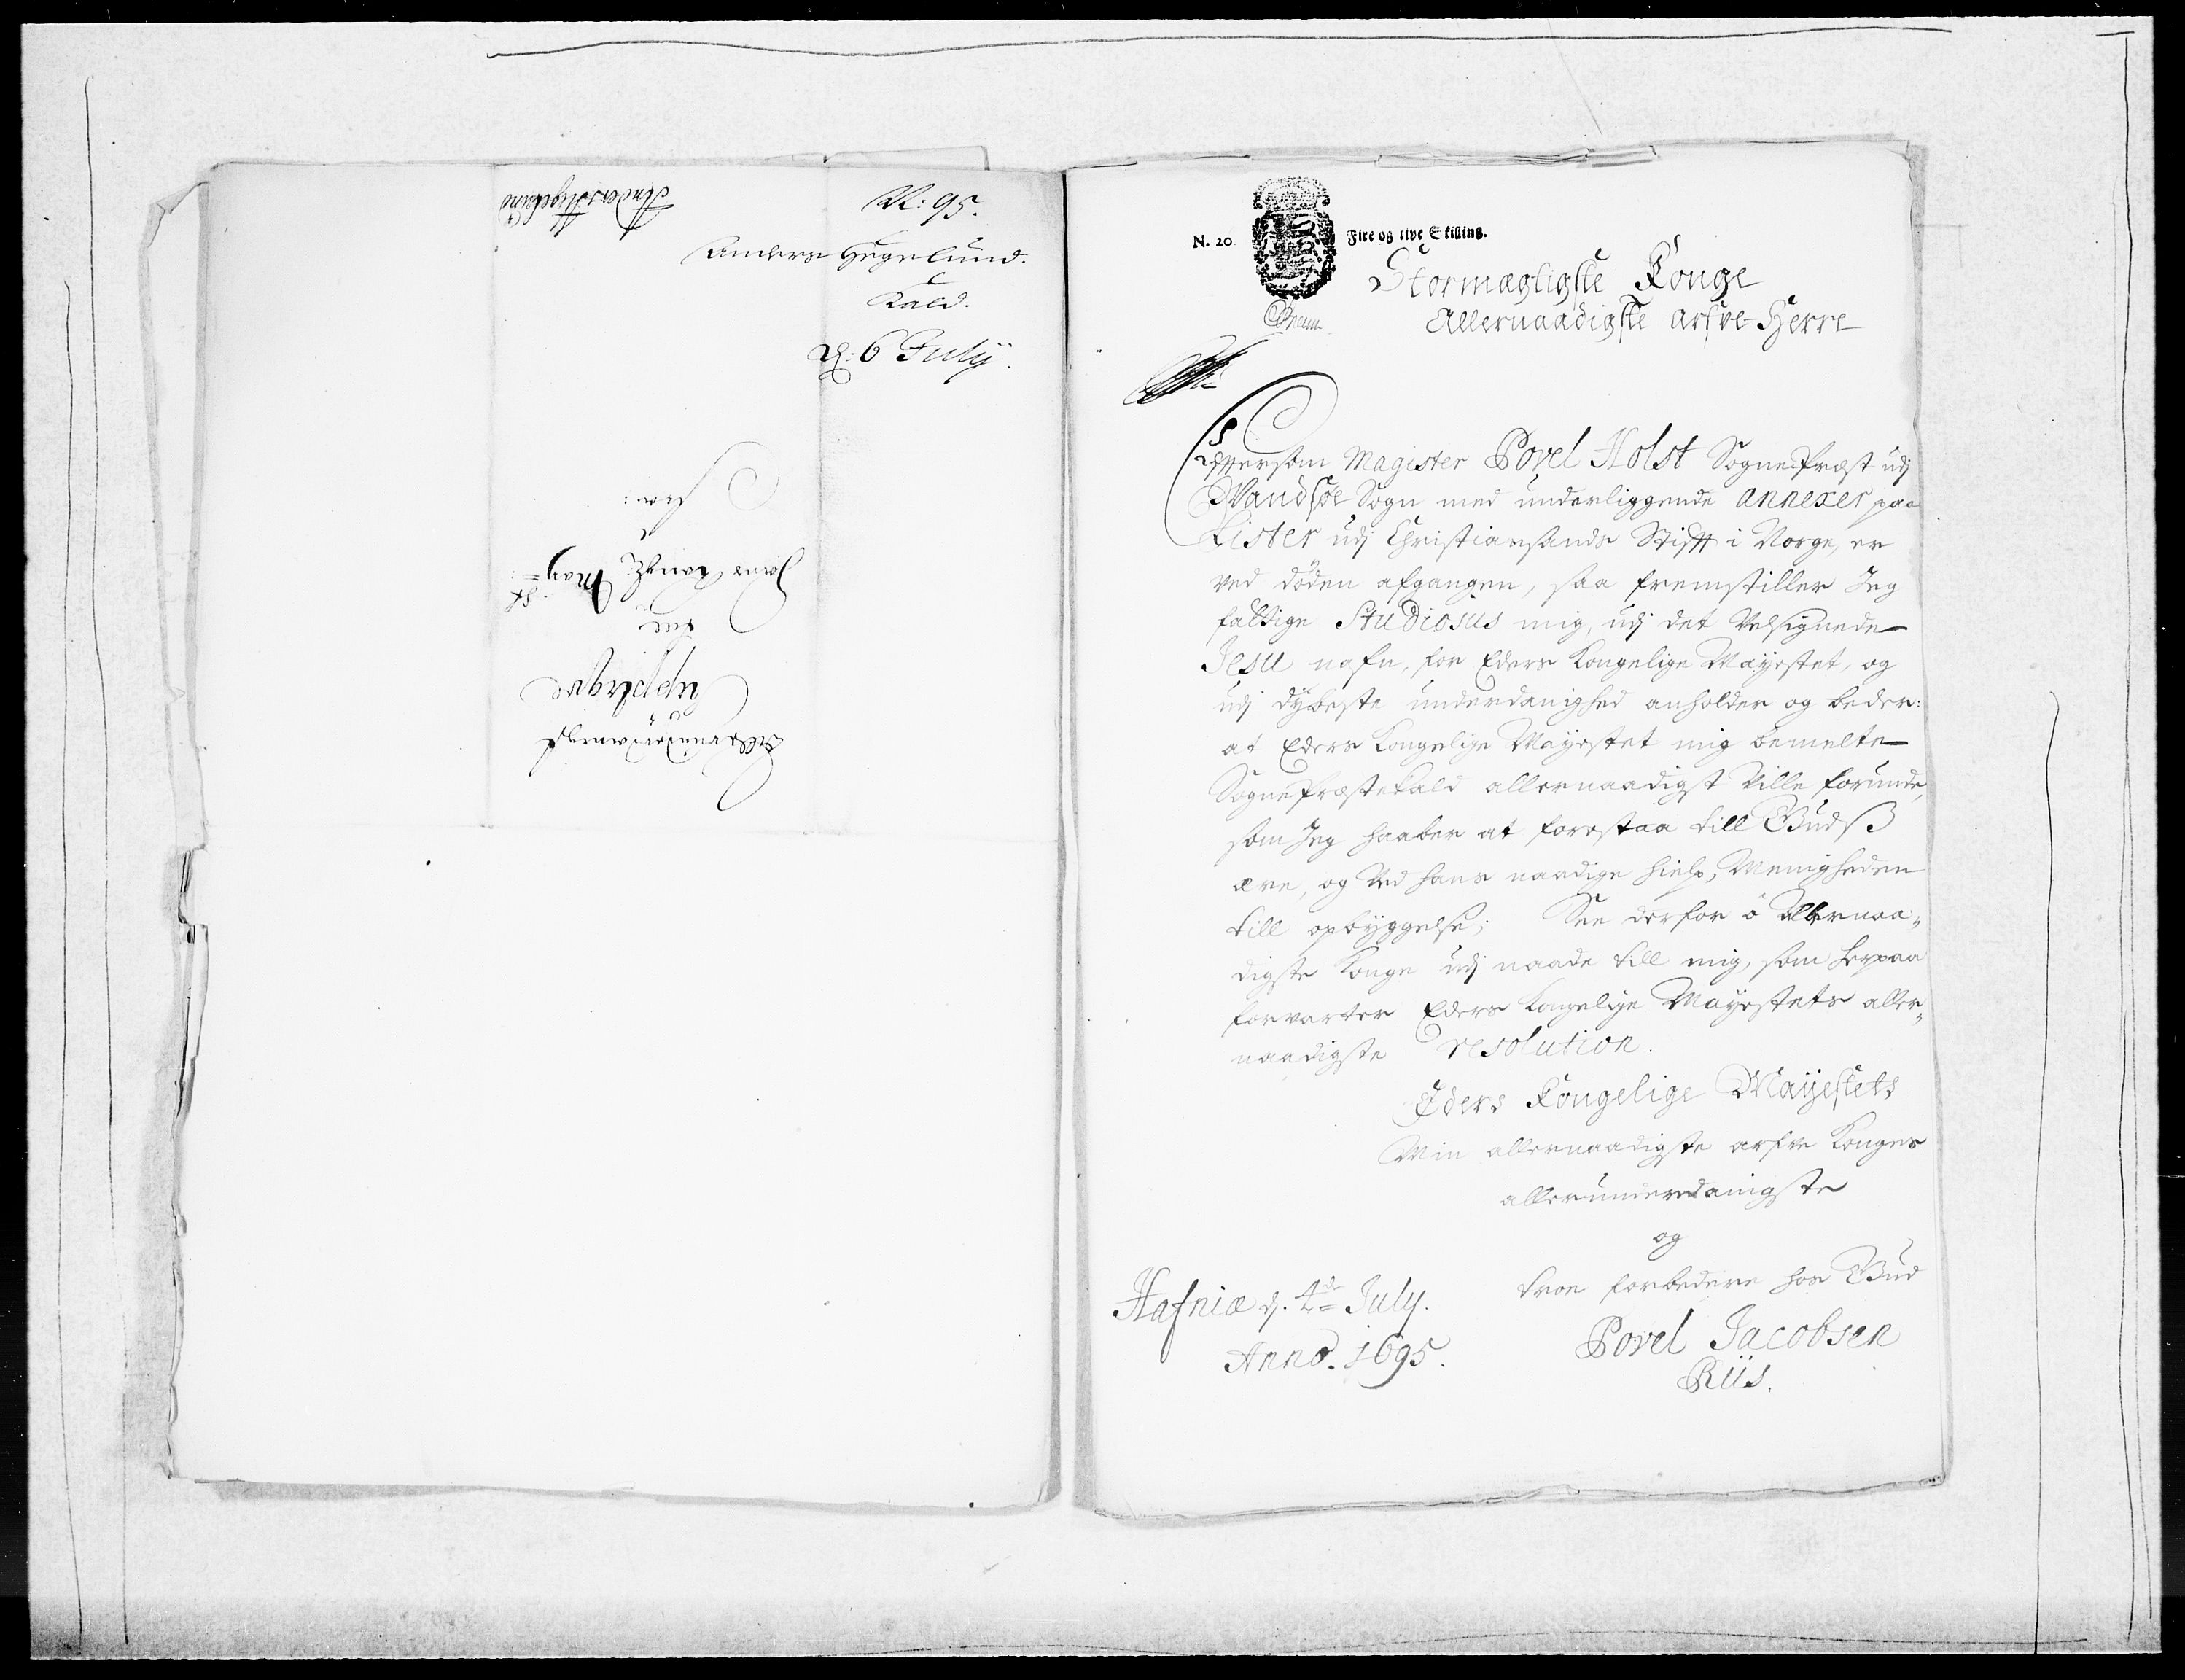 N: 95.
Anders Hegelund.
Kald.
d: 6 July.
Anders Hegelund
Allerunderdanigst
Supplique
Till
Hans Kongl: May:st
fra:
N. 20. Fire og tive Skilling.
Stormægtigste Konge
Allernaadigste arfve-Herre
Effterson Magister Povel Holst Sognepræst udj
Vandsøe Sogn med underliggende annexer paa
Lister udj Christiansands Stifft i Norge, er
ved døden afgangen, saa fremstiller Jeg
fattige Studiosus mig, udj det Velsignede
Jesu nafn, for Eders Kongelige Mayestet, og
udj dybeste underdanighed anholder og beder:
at Eders Kongelige Mayestet mig bemelte
Sognepræstekald allernaadigst Ville forunde,
som Jeg haaber at forestaa till Gudß
ære, og Ved hans naadige hielp, Menigheden
till opbyggelse; See derfor ô Allernaa-
digste Konge udj naade till mig, som herpaa
forvarter Eders Kongelige Mayestets aller-
naadigste resolution.
Eders Kongelige Mayestets
Min allernaadigste arfve Konges
allerunderdanigste
og
troe forbedere hos Gud
Hafniæ d. 4de July.
Anno. 1695.
Povel Jacobsen
Riis.